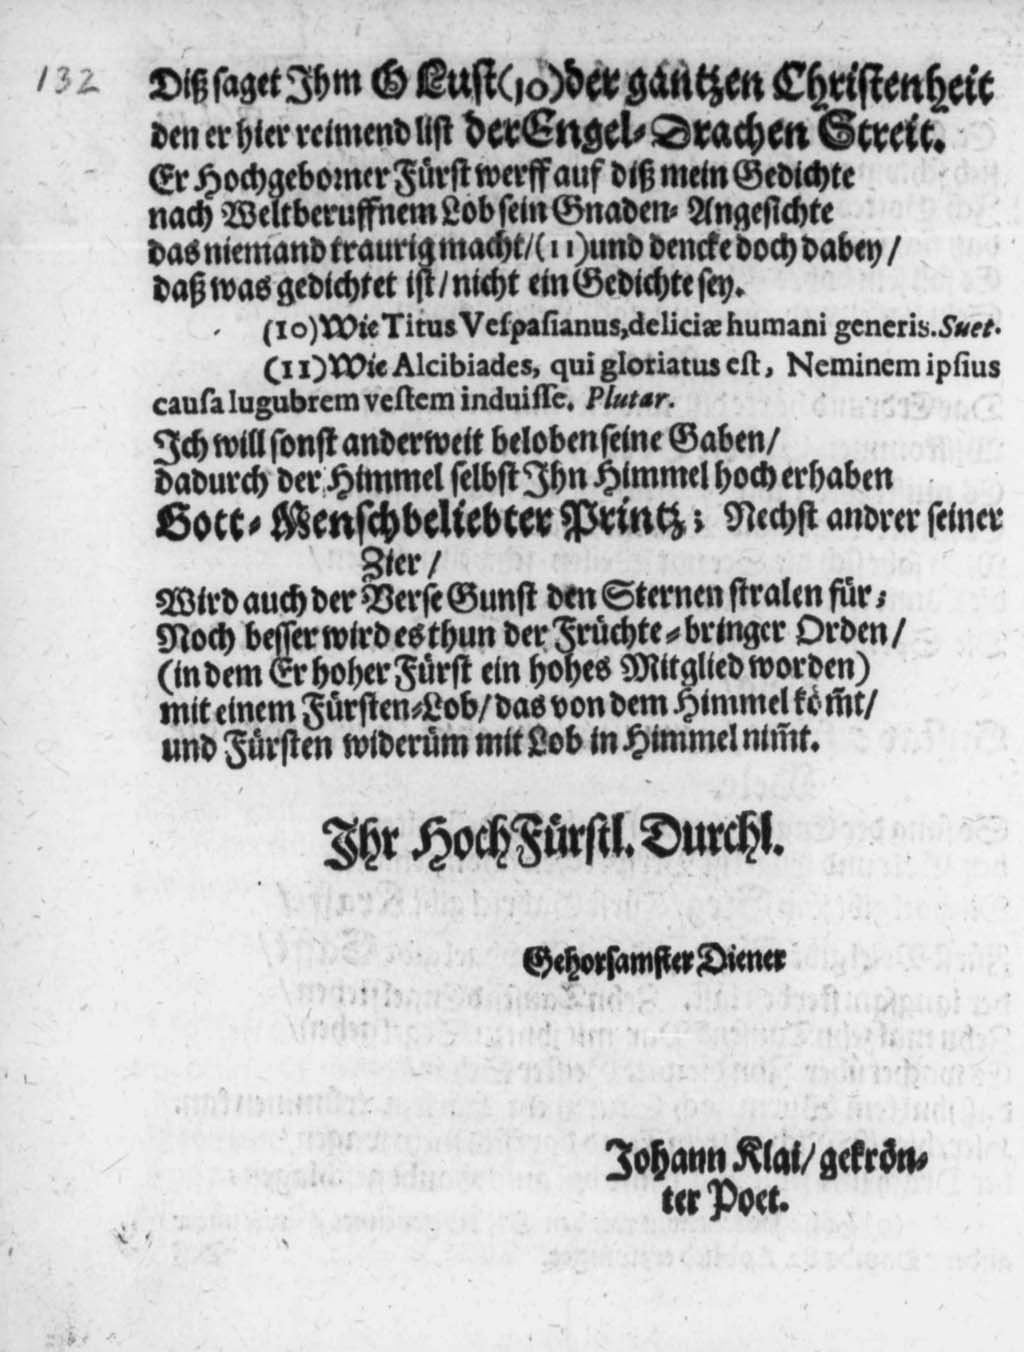 132
Diß saget Ihm O Lust (10) der gantzen Christenheit
den er hier reimend list der Engel-Drachen Streit.
Er Hochgeborner Fürst werff auf diß mein Gedichte
nach Weltberuffnem Lob sein Gnaden-Angesichte
das niemand traurig macht/ (11) und dencke doch dabey/
daß was gedichtet ist/ nicht ein Gedichte sey.
(10) Wie Titus Vespasianus, deliciæ humani generis. Suet.
(11) Wie Alcibiades, qui gloriatus est, Neminem ipsius
causa lugubrem vestem induisse. Plutar.
Ich will sonst anderweit beloben seine Gaben/
dadurch der Himmel selbst Ihn Himmel hoch erhaben
Gott-Menschbeliebter Printz; Nechst andrer seiner
Zier/
Wird auch der Verse Gunst den Sternen stralen für;
Noch besser wird es thun der Früchte-bringer Orden/
(in dem Er hoher Fürst ein hohes Mitglied worden)
mit einem Fürsten-Lob/ das von dem Himmel köm̃t/
und Fürsten widerüm mit Lob in Himmel nim̃t.
Ihr HochFürstl. Durchl.
Gehorsamster Diener
Johann Klai/ gekrön-
ter Poet.